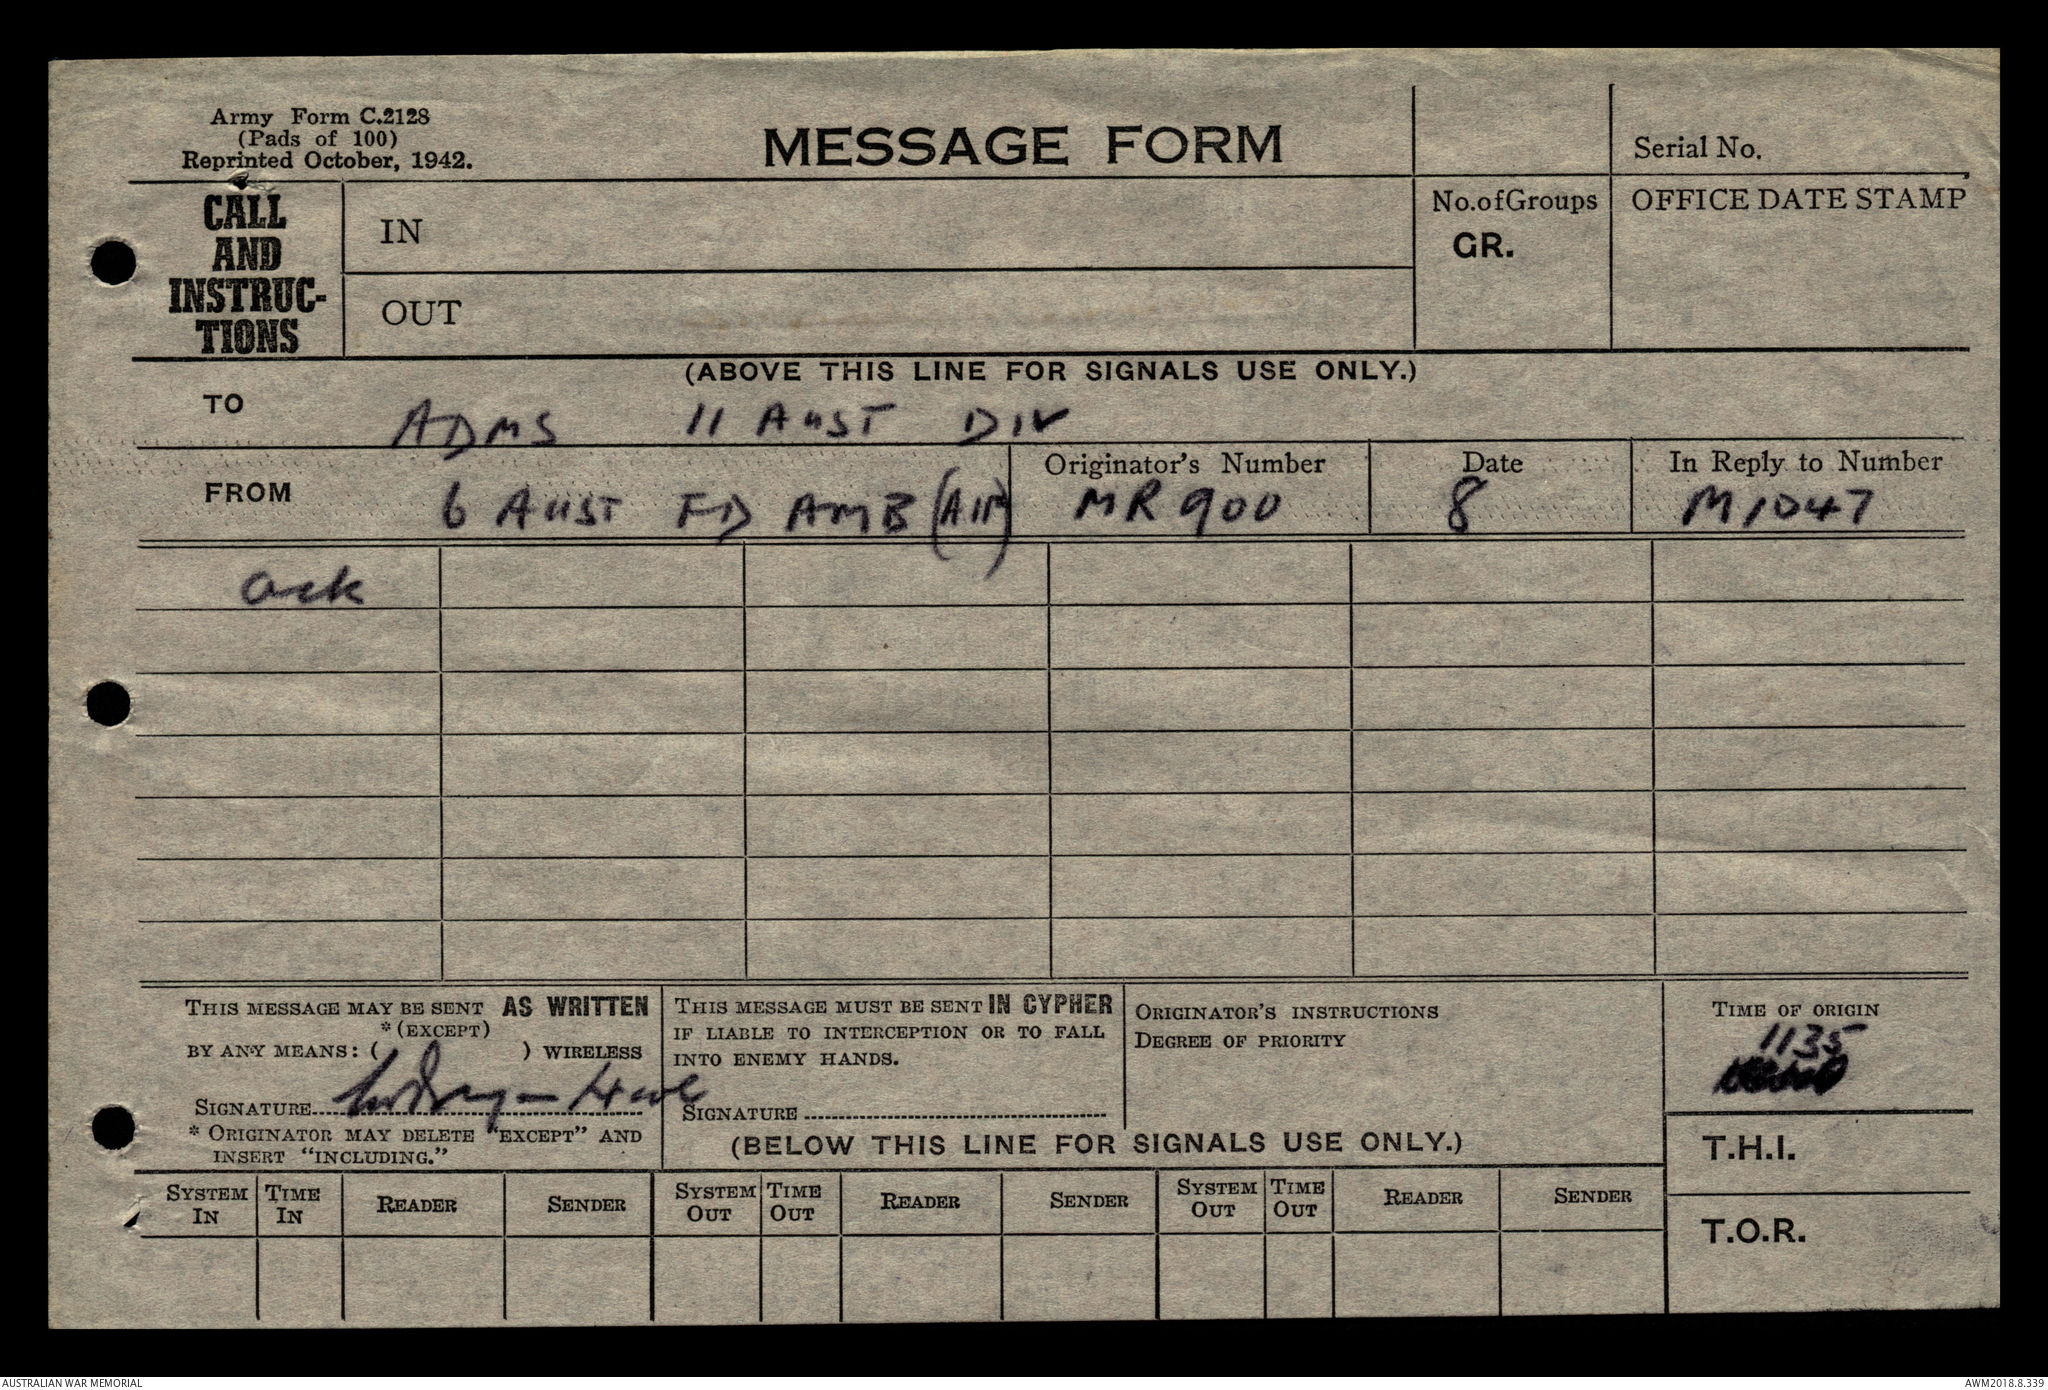 Army Form C.2128
(Pads of 100)
Reprinted October, 1942.
MESSAGE FORM
Serial No.
CALL
AND
INSTRUC-
TIONS
IN
OUT
No. of Groups
GR.
OFFICE DATE STAMP
(ABOVE THIS LINE FOR SIGNALS USE ONLY.)
TO ADMS 11 AUST DIV
FROM 6 AUST FD AMB (AIF)
Originator's Number
MR 900
Date
8
In Reply to Number
M1047
Ack
THIS MESSAGE MAY BE SENT AS WRITTEN
*(EXCEPT)
BY ANY MEANS: ( ) WIRELESS
SIGNATURE
* ORIGINATOR MAY DELETE "EXCEPT" AND
INSERT "INCLUDING."
THIS MESSAGE MUST BE SENT IN CYPHER
IF LIABLE TO INTERCEPTION OR TO FALL
INTO ENEMY HANDS.
SIGNATURE
ORIGINATOR'S INSTRUCTIONS
DEGREE OF PRIORITY
TIME OF ORIGIN
1135
(BELOW THIS LINE FOR SIGNALS USE ONLY.)
T.H.I.
T.O.R.
SYSTEM IN TIME IN READER SENDER SYSTEM OUT TIME OUT READER SENDER SYSTEM OUT TIME OUT READER SENDER
AUSTRALIAN WAR MEMORIAL
AWM2018.8.339